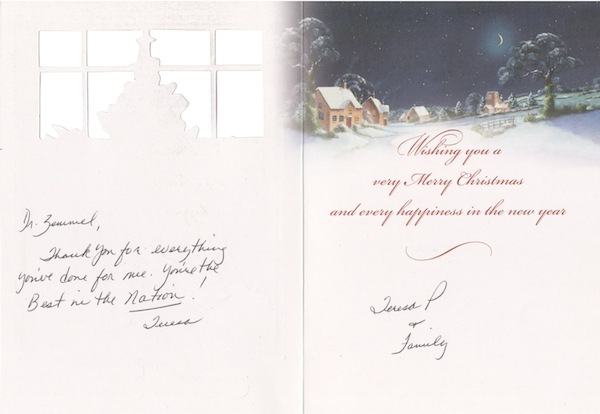 Dr. Zemmel,
Thank you for everything
you've done for me. You're the
Best in the Nation!
Teresa
Wishing you a
very Merry Christmas
and every happiness in the new year
Teresa P
&
Family